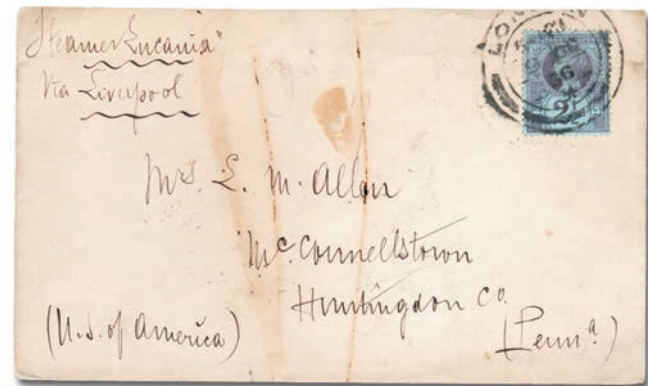 "Steamer Lucania"
Via Liverpool
LON
OC
96
2½
Mrs. E. M. Allen
McConnellstown
Huntingdon Co.
(U.S. of America)
(Penna.)